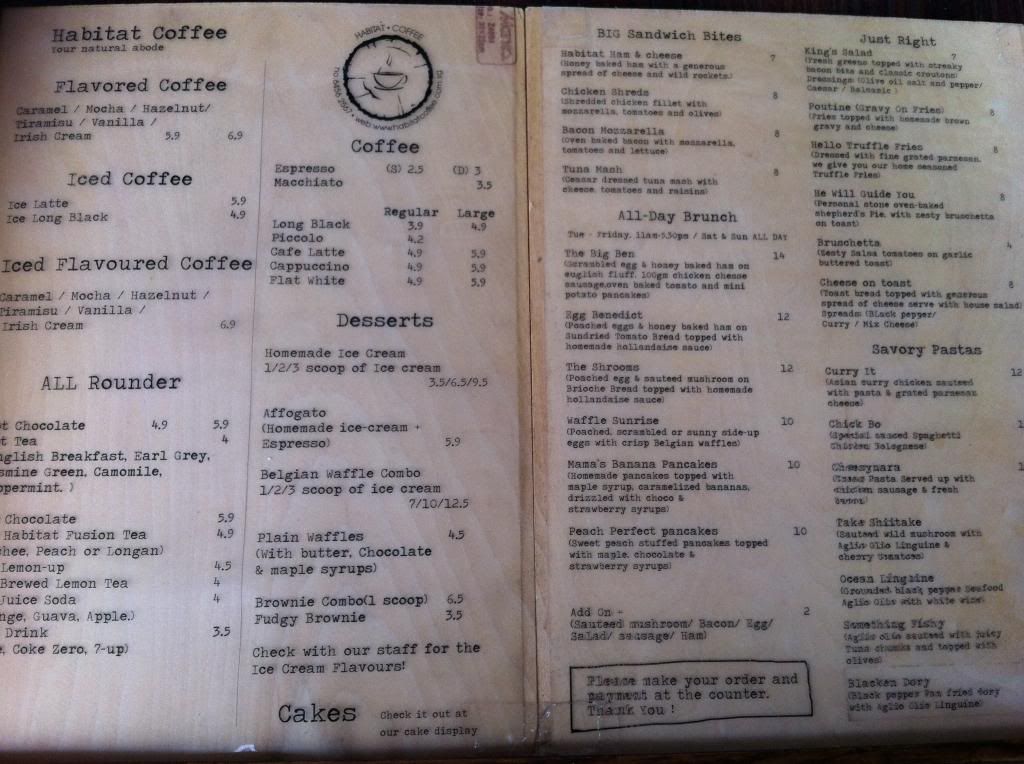 Habitat Coffee
Your natural abode
Flavored Coffee
Caramel / Mocha / Hazelnut/
Tiramisu / Vanilla /
Irish Cream 5.9 6.9
Iced Coffee
Ice Latte 5.9
Ice Long Black 4.9
Iced Flavoured Coffee
Caramel / Mocha / Hazelnut /
Tiramisu / Vanilla /
Irish Cream 6.9
ALL Rounder
t Chocolate 4.9 5.9
t Tea 4
nglish Breakfast, Earl Grey,
smine Green, Camomile,
ppermint. )
Chocolate 5.9
Habitat Fusion Tea 4.9
chee, Peach or Longan)
Lemon-up 4.5
Brewed Lemon Tea 4
Juice Soda 4
nge, Guava, Apple.)
Drink 3.5
, Coke Zero, 7-up)
HABITAT • COFFEE
web www.habitatcoffee.com.sg
Coffee
Espresso (S) 2.5 (D) 3
Macchiato 3.5
Regular Large
Long Black 3.9 4.9
Piccolo 4.2
Cafe Latte 4.9 5.9
Cappuccino 4.9 5.9
Flat White 4.9 5.9
Desserts
Homemade Ice Cream
1/2/3 scoop of Ice cream
3.5/6.5/9.5
Affogato
(Homemade ice-cream +
Espresso) 5.9
Belgian Waffle Combo
1/2/3 scoop of ice cream
7/10/12.5
Plain Waffles 4.5
(With butter, Chocolate
& maple syrups)
Brownie Combo(1 scoop) 6.5
Fudgy Brownie 3.5
Check with our staff for the
Ice Cream Flavours!
Cakes Check it out at
our cake display
BIG Sandwich Bites
Habitat Ham & cheese 7
(Honey baked ham with a generous
spread of cheese and wild rockets)
Chicken Shreds 8
(Shredded chicken fillet with
mozzarella, tomatoes and olives)
Bacon Mozzarella 8
(Oven baked bacon with mozzarella,
tomatoes and lettuce)
Tuna Mash 8
(Ceasar dressed tuna mash with
cheese, tomatoes and raisins)
All-Day Brunch
Tue - Friday, 11am-5.30pm / Sat & Sun ALL DAY
The Big Ben 14
(Scrambled egg & honey baked ham on
english fluff, 100gm chicken cheese
sausage,oven baked tomato and mini
potato pancakes)
Egg Benedict 12
(Poached eggs & honey baked ham on
Sundried Tomato Bread topped with
homemade hollandaise sauce)
The Shrooms 12
(Poached egg & sauteed mushroom on
Brioche Bread topped with homemade
hollandaise sauce)
Waffle Sunrise 10
(Poached, scrambled or sunny side-up
eggs with crisp Belgian waffles)
Mama's Banana Pancakes 10
(Homemade pancakes topped with
maple syrup, caramelized bananas,
drizzled with choco &
strawberry syrups)
Peach Perfect pancakes 10
(Sweet peach stuffed pancakes topped
with maple, chocolate &
strawberry syrups)
Add On - 2
(Sauteed mushroom/ Bacon/ Egg/
Salad/ sausage/ Ham)
Please make your order and
payment at the counter.
Thank You !
Just Right
King's Salad 7
(Fresh greens topped with streaky
bacon bits and classic croutons)
Dressings: (Olive oil salt and pepper/
Caesar / Balsamic )
Poutine (Gravy On Fries) 8
(Fries topped with homemade brown
gravy and cheese)
Hello Truffle Fries 8
(Dressed with fine grated parmesan,
we give you our home seasoned
Truffle Fries)
He Will Guide You 8
(Personal stone oven-baked
shepherd's Pie, with zesty bruschetta
on toast)
Bruschetta 4
(Zesty Salsa tomatoes on garlic
buttered toast)
Cheese on toast 8
(Toast bread topped with generous
spread of cheese serve with house salad)
Spreads: (Black pepper/
Curry / Mix Cheese)
Savory Pastas
Curry It 12
(Asian curry chicken sauteed
with pasta & grated parmesan
cheese)
Chick Bo 1
(Special sauced Spaghetti
Chicken Bolognese)
Cheesynara 1
Pasta Served up with
chicken sausage & fresh
Take Shiitake
(Sauteed wild mushroom with
Aglio Olio Linguine &
cherry tomatoes)
Ocean Linguine
(Grounded black pepper Seafood
Aglio Olio with white wine)
Something Fishy
(Aglio olio sauteed with juicy
Tuna chunks and topped with
olives)
Blacken Dory
(Black pepper Pan fried dory
with Aglio Olio Linguine)